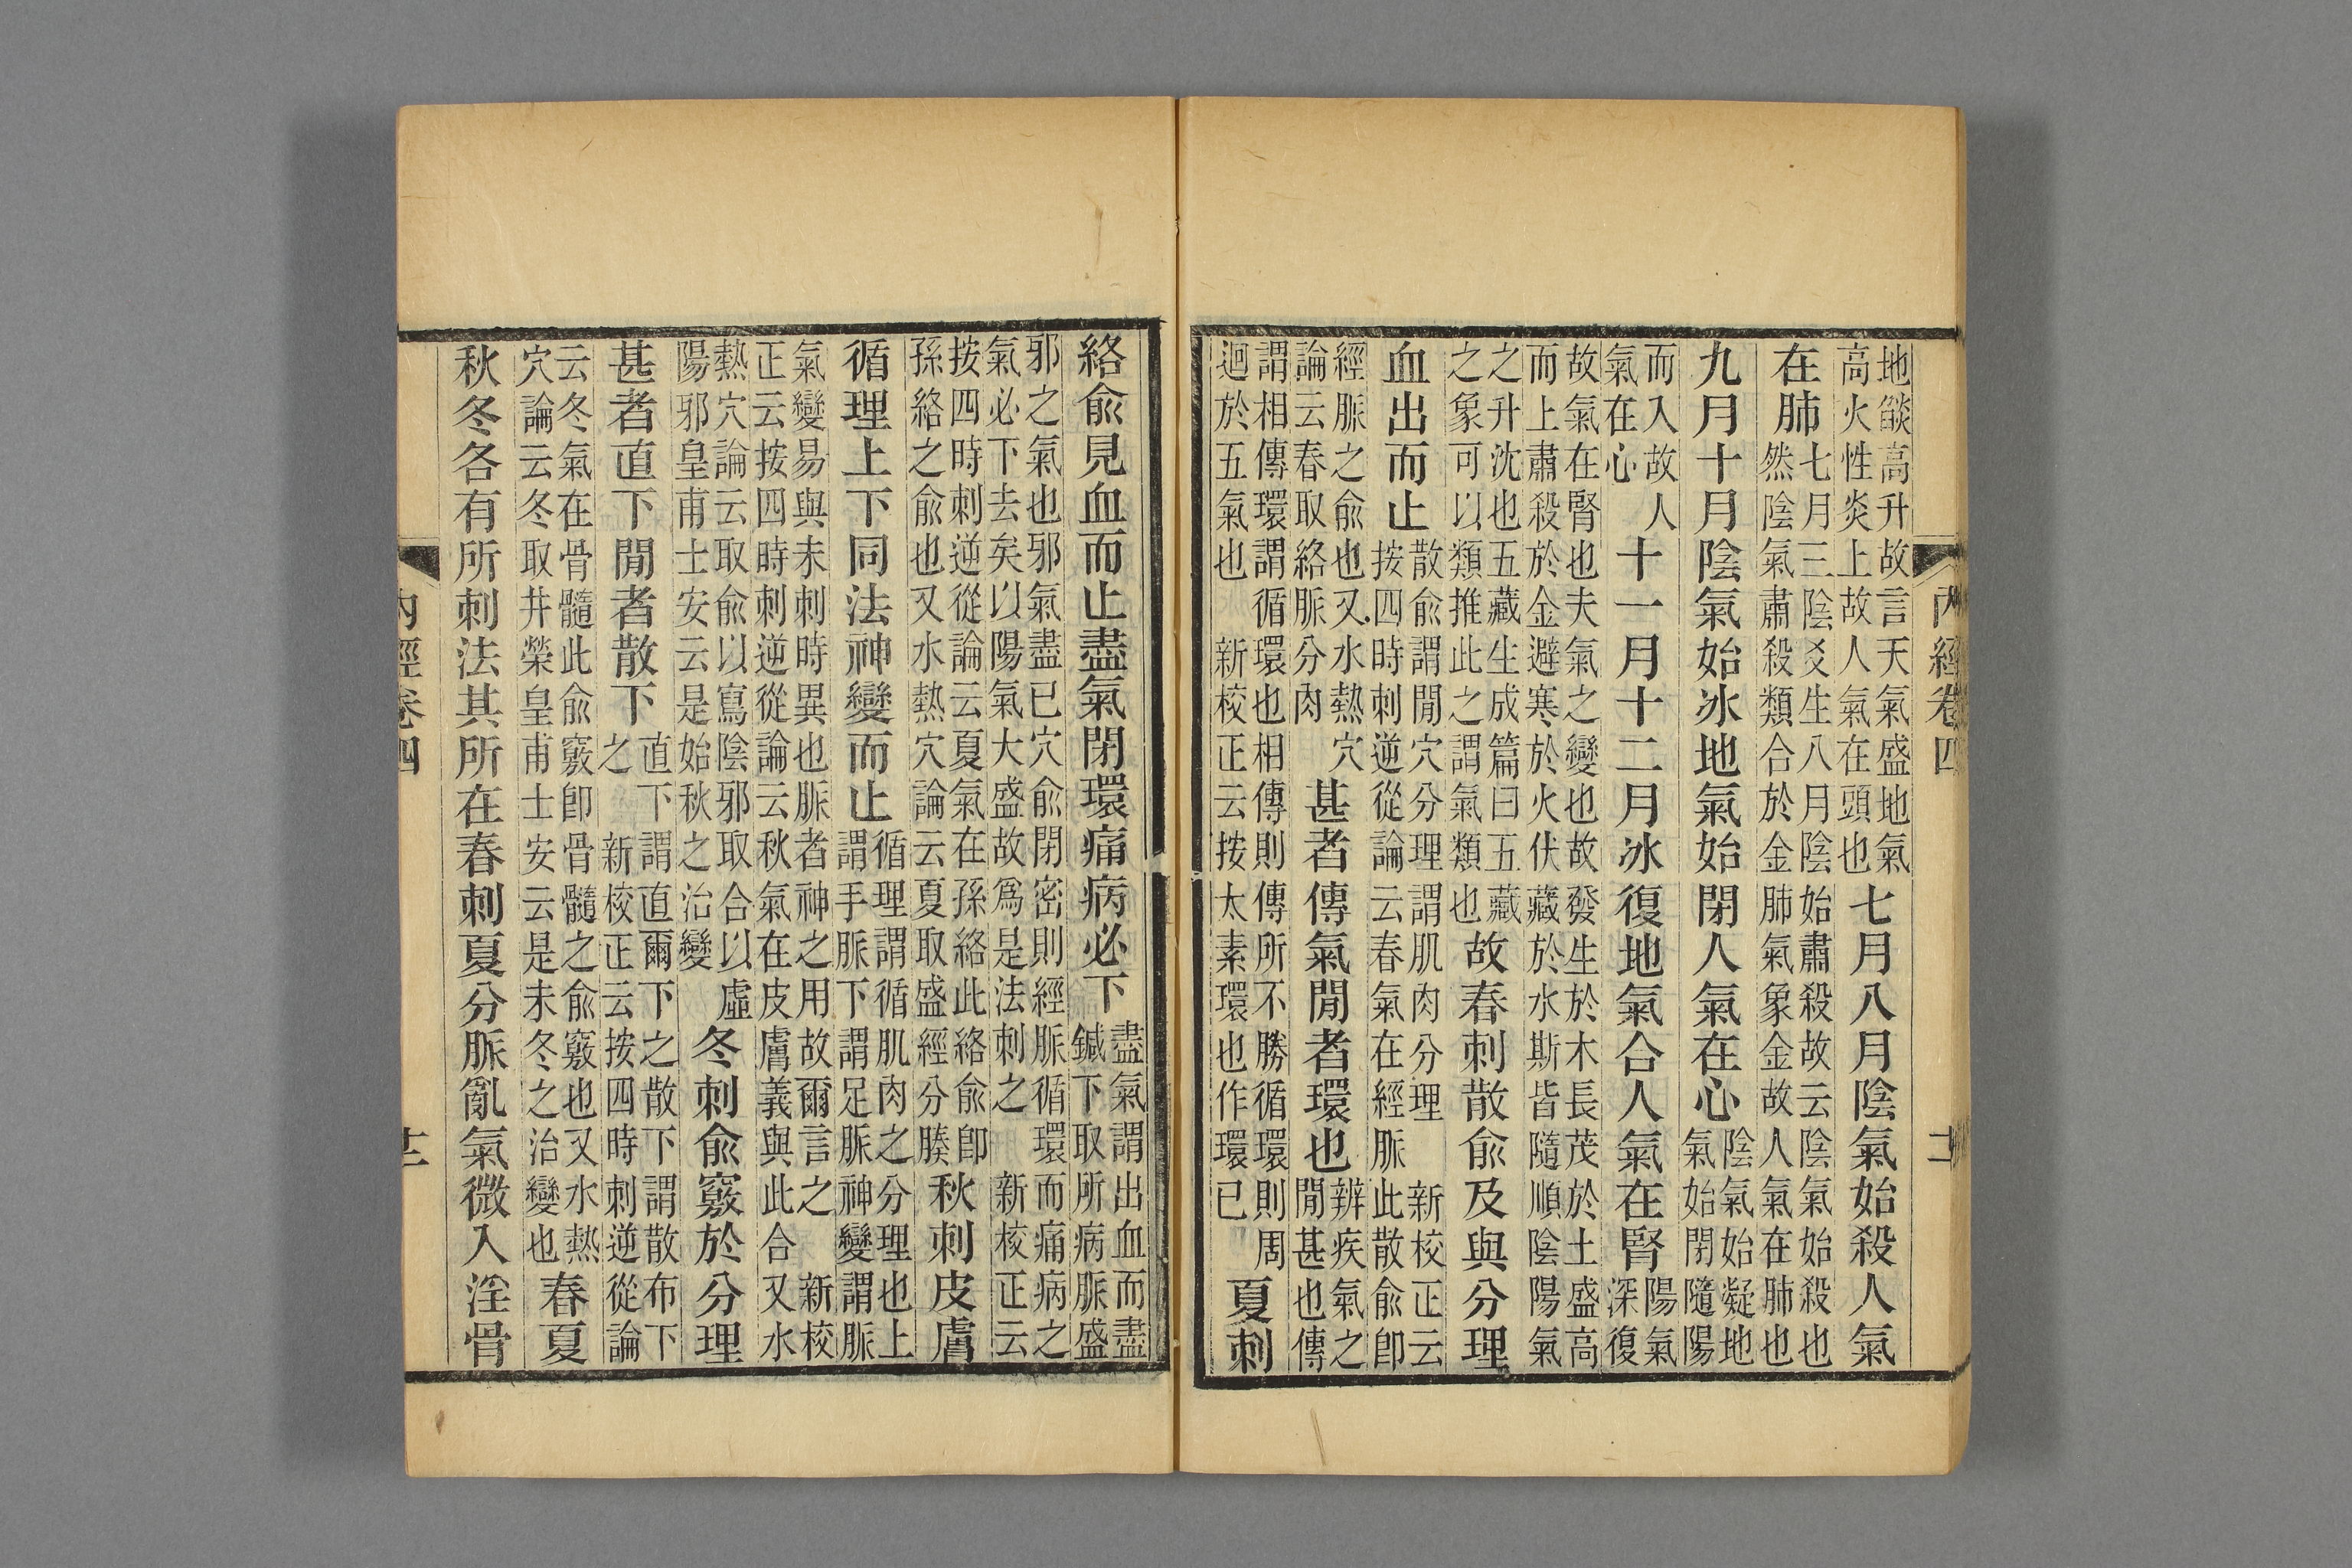 內經卷四
地燄高升故言天氣盛地氣
高火性炎上故人氣在頭也
七月八月陰氣始殺人氣
在肺
七月三陰爻生八月陰始肅殺故云陰氣始殺也
然陰氣肅殺類合於金肺氣象金故人氣在肺也
九月十月陰氣始冰地氣始閉人氣在心
陰氣始凝地
氣始閉隨陽
而入故人
氣在心
十一月十二月冰復地氣合人氣在腎
陽氣
深復
故氣在腎也夫氣之變也故發生於木長茂於土盛高
而上肅殺於金避寒於火伏藏於水斯皆隨順陰陽氣
之升沈也五藏生成篇曰五藏
之象可以類推此之謂氣類也
故春刺散俞及與分理
血出而止
散俞謂閒穴分理謂肌肉分理 新校正云
按四時刺逆從論云春氣在經脈此散俞卽
經脈之俞也又水熱穴
論云春取絡脈分肉
甚者傳氣閒者環也
辨疾氣之
閒甚也傳
謂相傳環謂循環也相傳則傳所不勝循環則周
迴於五氣也 新校正云按太素環也作環已
夏刺
絡俞見血而止盡氣閉環痛病必下
盡氣謂出血而盡
鍼下取所病脈盛
邪之氣也邪氣盡已穴俞閉密則經脈循環而痛病之
氣必下去矣以陽氣大盛故爲是法刺之 新校正云
按四時刺逆從論云夏氣在孫絡此絡俞卽
孫絡之俞也又水熱穴論云夏取盛經分腠
秋刺皮膚
循理上下同法神變而止
循理謂循肌肉之分理也上
謂手脈下謂足脈神變謂脈
氣變易與未刺時異也脈者神之用故爾言之 新校
正云按四時刺逆從論云秋氣在皮膚義與此合又水
熱穴論云取俞以寫陰邪取合以虛
陽邪皇甫士安云是始秋之治變
冬刺俞竅於分理
甚者直下閒者散下
直下謂直爾下之散下謂散布下
之 新校正云按四時刺逆從論
云冬氣在骨髓此俞竅卽骨髓之俞竅也又水熱
穴論云冬取井滎皇甫士安云是末冬之治變也
春夏
秋冬各有所刺法其所在春刺夏分脈亂氣微入淫骨
內經卷四